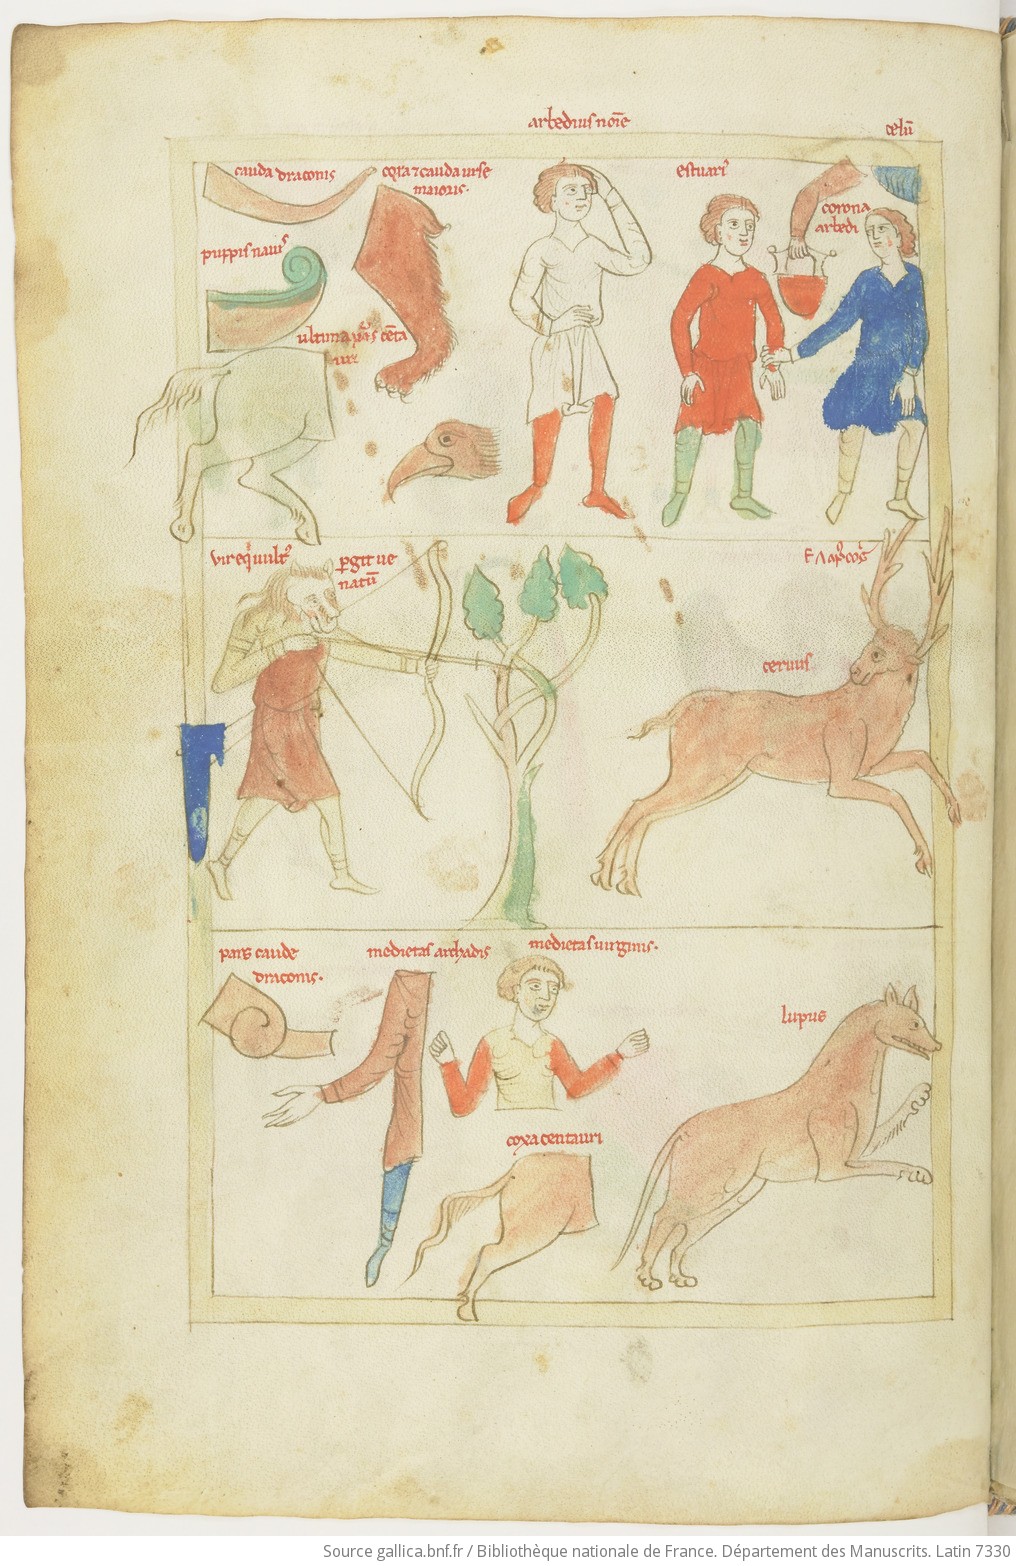 arbedius noīe
celū
cauda draconis
coxa ⁊ cauda urse
maioris.
estuari
corona
arbedi
puppis navis
ultima
vir equi vult
pergit ue
natū
cervus
pars caude
draconis.
medietas archadis
medietas virginis.
lupus
coxa centauri
Source gallica.bnf.fr / Bibliothèque nationale de France. Département des Manuscrits. Latin 7330